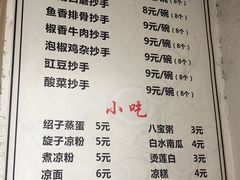 鱼香排骨抄手 9元/碗(8个)
椒香牛肉抄手 9元/碗(8个)
泡椒鸡杂抄手 9元/碗(8个)
豇豆抄手 9元/碗(8个)
酸菜抄手 9元/碗(8个)
小吃
绍子蒸蛋 5元 八宝粥 3元
旋子凉粉 5元 白水南瓜 4元
煮凉粉 5元 烫莲白 4元
凉面 6元 凉糕 4元